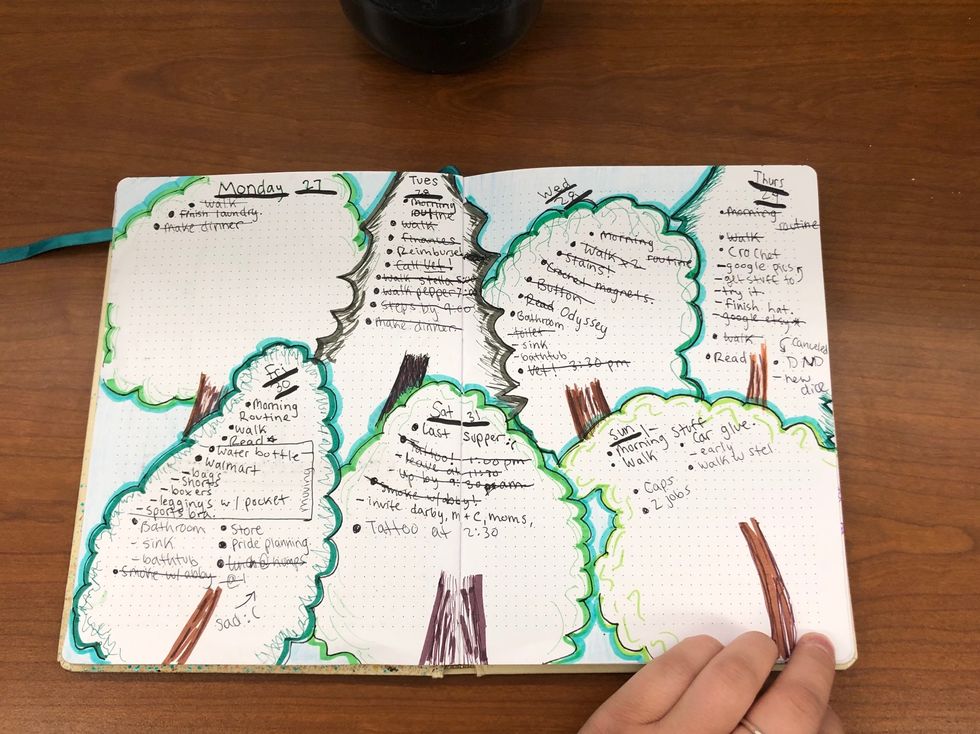 Monday 27
walk
finish laundry.
make dinner
Tues
28
Morning
routine
walk
finances
Reimburse
Call Vet!
walk stella
walk pepper 7:00
Steps by 9:00
make dinner
Wed
29
Morning
routine
Walk x 2
Stains!
Crochet magnets.
Button
Read Odyssey
Bathroom
toilet
- sink
- bathtub
Vet! 3:30 pm
Thurs
Morning
routine
Walk
Crochet
- google pics
- get stuff to
- try it
- finish hat.
- google etsy
walk
Read
Canceled
DND
- new
dice
Fri
30
Morning
Routine
walk
Read
Water bottle
Walmart
- bags
- shorts
- boxers
- leggings w/ pocket
- sports bra.
Bathroom
- sink
- bathtub
Smoke w/ abby
Store
Pride planning
@ 1
sad :(
Sat 31
Last supper :(
Tattoo! 1:00 pm
- leave at 11:30
Up by 9:30 am
Smoke w/ abby!
- invite darby, m + C, moms,
Tattoo at 2:30
Sun 1
Morning stuff
Walk
Caps
2 jobs
Car glue.
- early
walk w stel